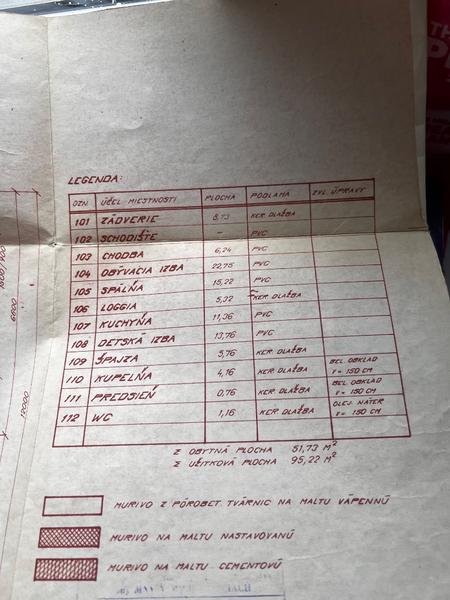 LEGENDA:
OZN ÚČEL MIESTNOSTI PLOCHA PODLAHA ZVL. ÚPRAVY
101 ZÁDVERIE 8,73 KER. DLAŽBA
102 SCHODIŠTE – PVC
103 CHODBA 6,24 PVC
104 OBÝVACIA IZBA 22,75 PVC
105 SPÁLŇA 15,22 PVC
106 LOGGIA 5,32 KER. DLAŽBA
107 KUCHYŇA 11,36 PVC
108 DETSKÁ IZBA 13,76 PVC
109 ŠPAJZA 5,76 KER. DLAŽBA
110 KUPELŇA 4,16 KER. DLAŽBA BEL. OBKLAD V = 150 CM
111 PREDSIEŇ 0,76 KER. DLAŽBA BEL. OBKLAD V = 150 CM
112 WC 1,16 KER. DLAŽBA OLEJ. NÁTER V = 150 CM
Σ OBYTNÁ PLOCHA 51,73 M²
Σ UŽITKOVÁ PLOCHA 95,22 M²
MURIVO Z PÓROBET. TVÁRNIC NA MALTU VÁPENNÚ
MURIVO NA MALTU NASTAVOVANÚ
MURIVO NA MALTU CEMENTOVÚ